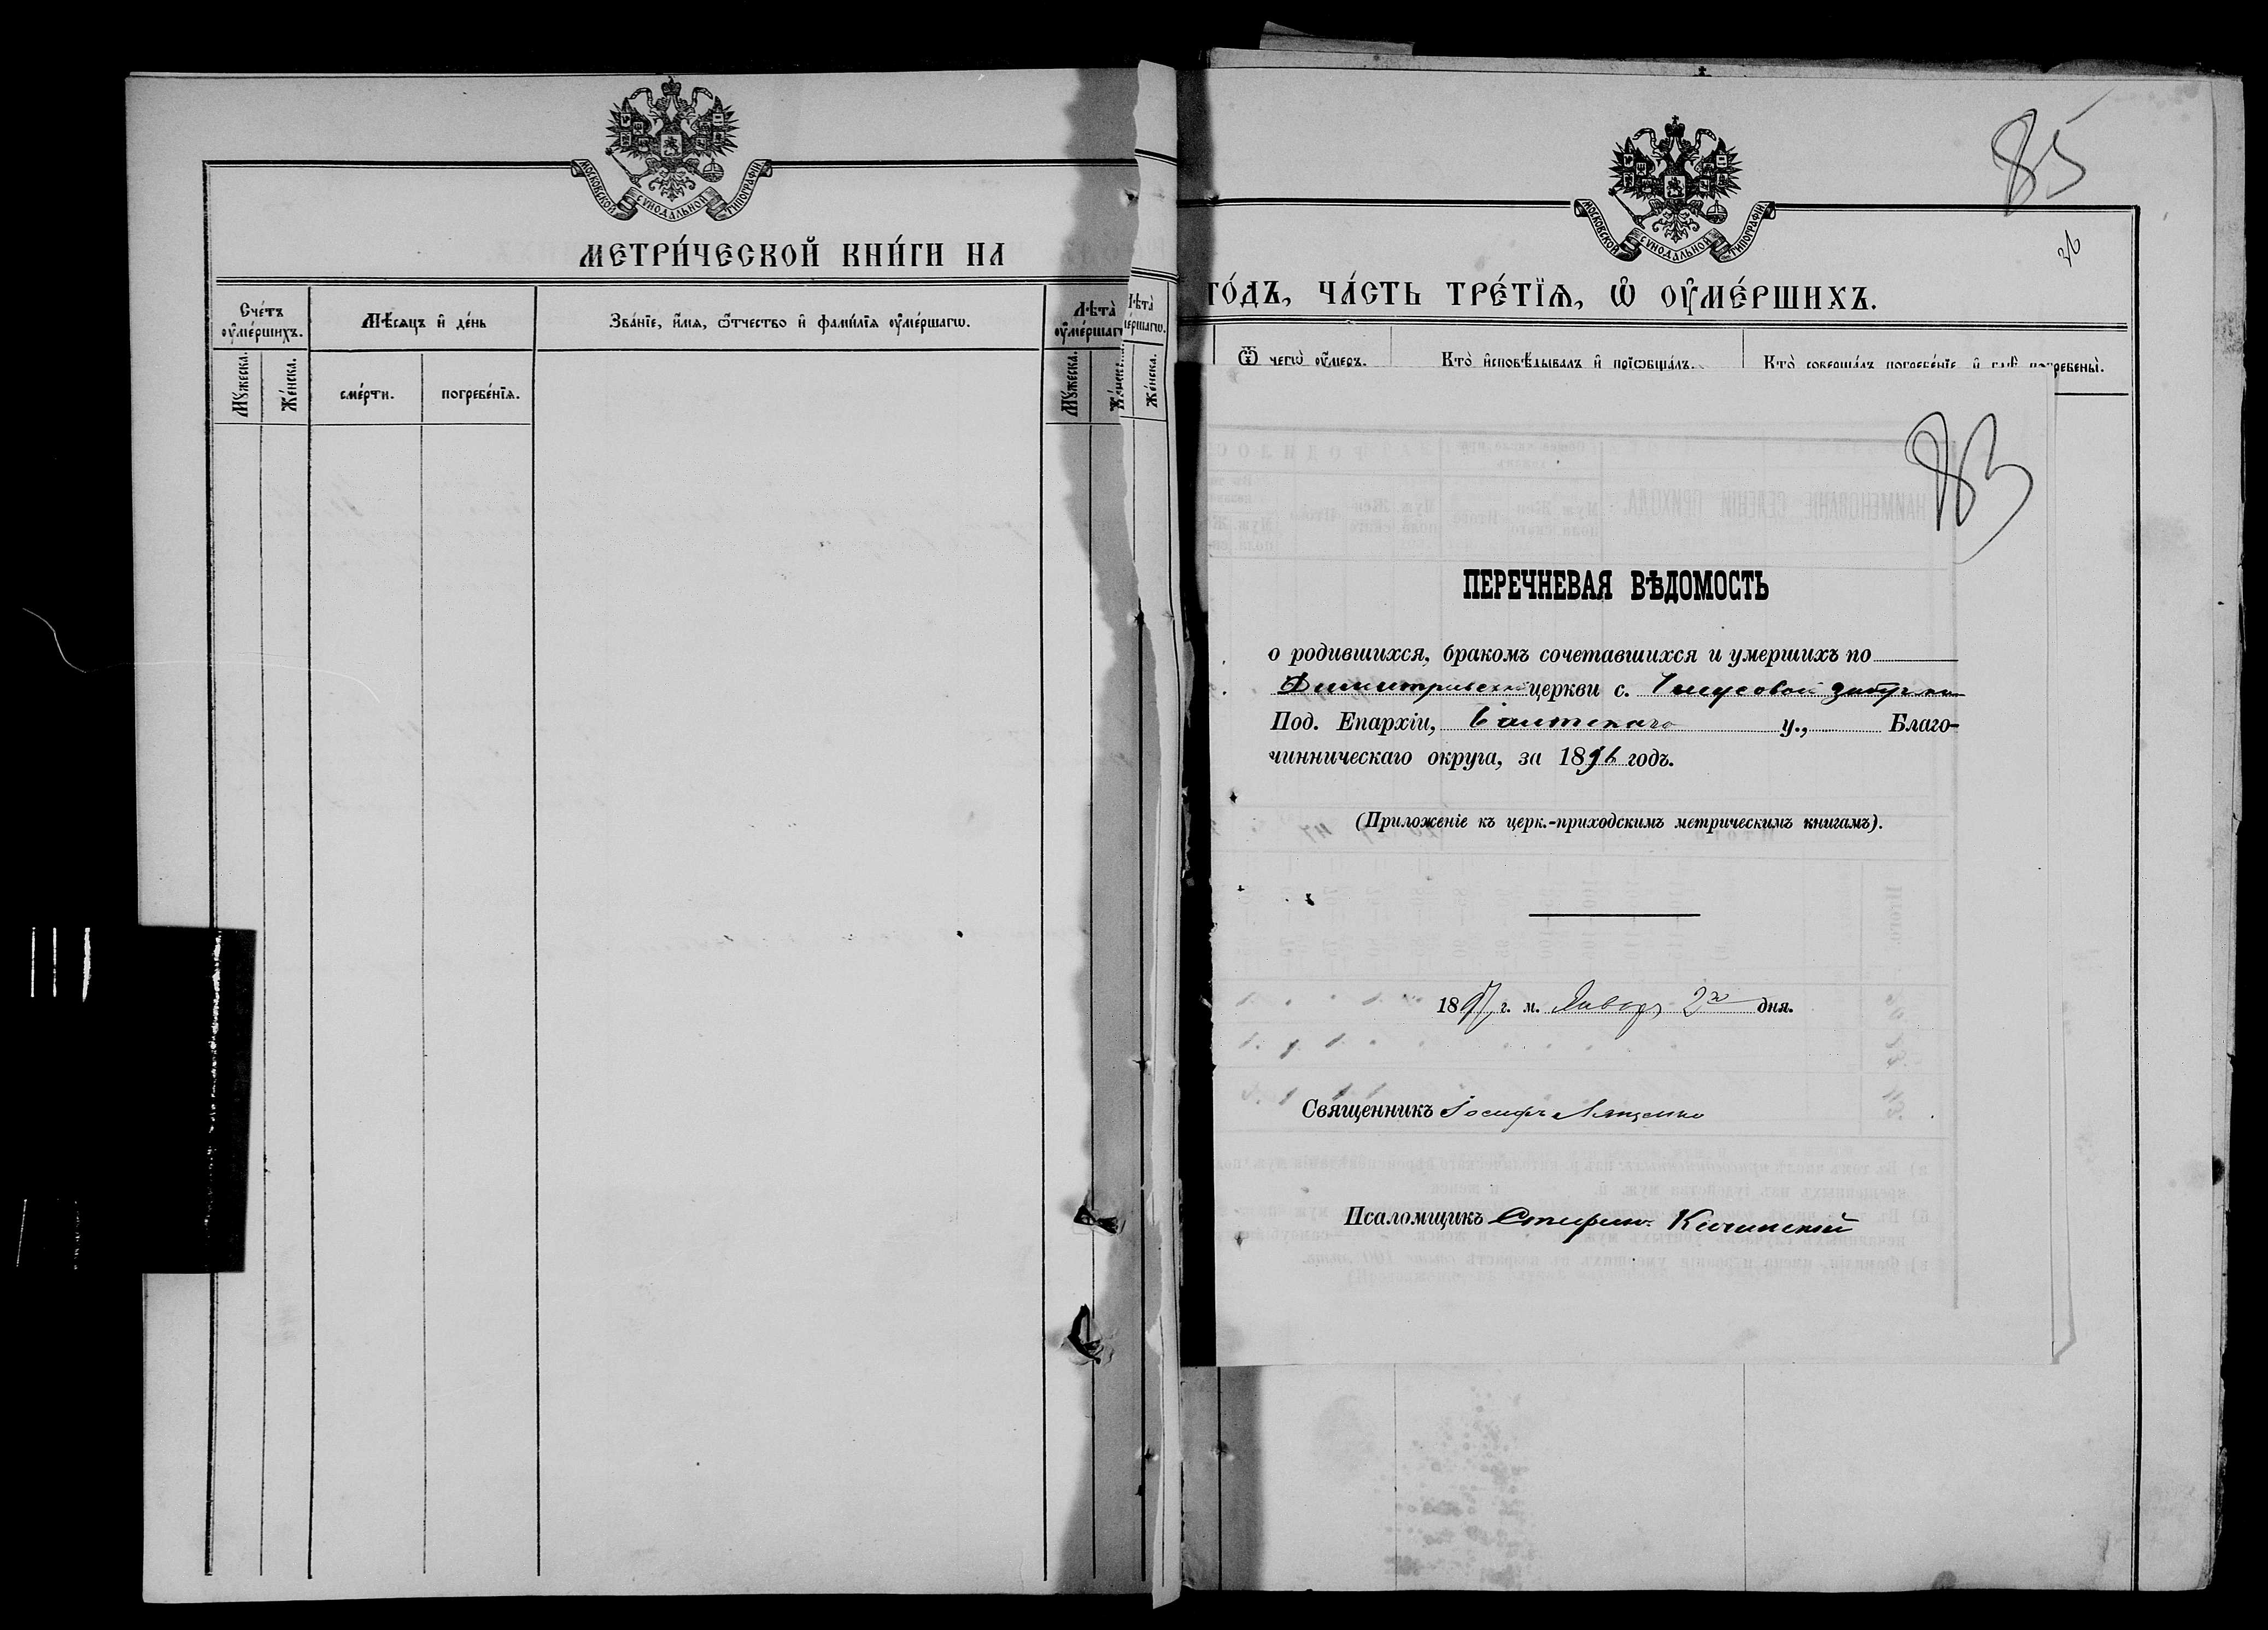 МОСКОВСКОЙ СѴНОДАЛЬНОЙ ТИПОГРАФІИ
МЕТРИ́ЧЕСКОЙ КНИ́ГИ НА
Сче́тъ ᲂу҆ме́ршихъ.
Мѣ́сяцъ и҆ де́нь
Зва́нїе, и҆́мя, ѻ҆́тчество и҆ фами́лїя ᲂу҆ме́ршагѡ.
Лѣ́та ᲂу҆ме́ршагѡ
Мꙋ́жеска.
Же́нска.
сме́рти.
погребе́нїя.
Мꙋ́жеска.
Лѣ́та
Же́нска.
МОСКОВСКОЙ СѴНОДАЛЬНОЙ ТИПОГРАФІИ
85
ГО́ДЪ, ЧА́СТЬ ТРЕ́ТЇѦ, Ѡ҆ ОУ҆МЕ́РШИХЪ.
Ѿ чегѡ̀ ᲂу҆́меръ.
Кто̀ и҆сповѣ́дывалъ и҆ прїѡбща́лъ.
Кто̀ соверша́лъ погребе́нїе и҆ гдѣ̀ погребены̀.
83
ПЕРЕЧНЕВАЯ ВѢДОМОСТЬ
о родившихся, бракомъ сочетавшихся и умершихъ по
Димитріевской церкви с. Чаусовой
Под. Епархіи, Балтскаго у., Благо-
чинническаго округа, за 1896 годъ.
(Приложеніе къ церк.-приходскимъ метрическимъ книгамъ).
1897 г. м. Января 2го дня.
Священникъ Іосифъ Лященко
Псаломщикъ Стефанъ